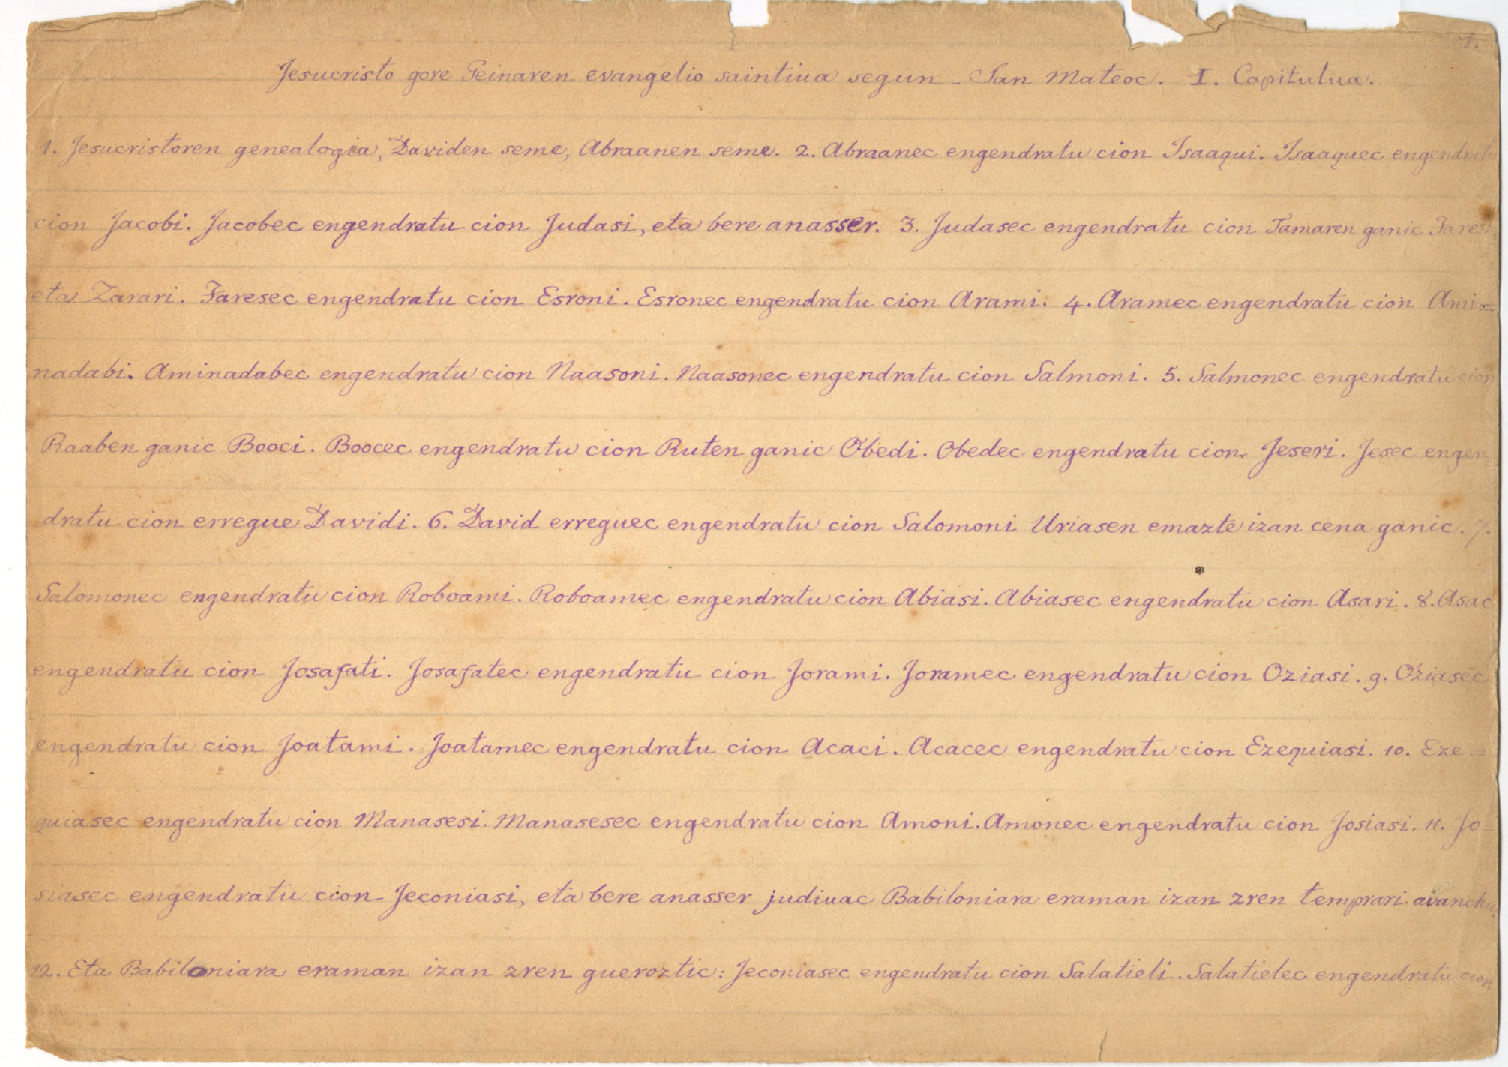 1.
Jesucristo gore Jeinaren evangelio saintiua segun San Mateoc. I. Capitulua.
1. Jesucristoren genealogia, Daviden seme, Abraanen seme. 2. Abraanec engendratu cion Isaaqui. Isaaquec engendratu
cion Jacobi. Jacobec engendratu cion Judasi, eta bere anasser. 3. Judasec engendratu cion Tamaren ganic Faresi
eta Zarari. Faresec engendratu cion Esroni. Esronec engendratu cion Arami. 4. Aramec engendratu cion Ami=
nadabi. Aminadabec engendratu cion Naasoni. Naasonec engendratu cion Salmoni. 5. Salmonec engendratu cion
Raaben ganic Booci. Boocec engendratu cion Ruten ganic Obedi. Obedec engendratu cion Jeseri. Jesec engen
dratu cion erregue Davidi. 6. David erreguec engendratu cion Salomoni Uriasen emazte izan cena ganic. 7.
Salomonec engendratu cion Roboami. Roboamec engendratu cion Abiasi. Abiasec engendratu cion Asari. 8. Asac
engendratu cion Josafati. Josafatec engendratu cion Jorami. Joramec engendratu cion Oziasi. 9. Oziasec
engendratu cion Joatami. Joatamec engendratu cion Acaci. Acacec engendratu cion Ezequiasi. 10. Eze=
quiasec engendratu cion Manasesi. Manasesec engendratu cion Amoni. Amonec engendratu cion Josiasi. 11. Jo
siasec engendratu cion Jeconiasi, eta bere anasser judiuac Babiloniara eraman izan zren temprari
12. Eta Babiloniara eraman izan zren gueroztic: Jeconiasec engendratu cion Salatieli. Salatielec engendratu cion